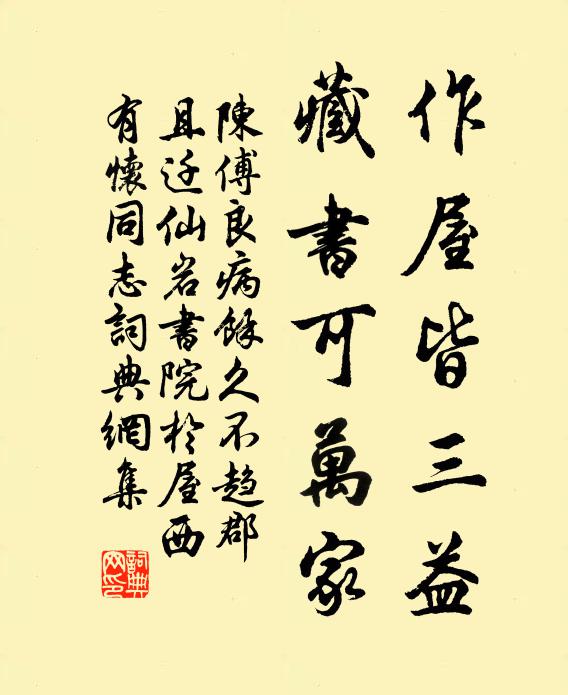 作屋皆三益
藏書可萬家
陳傅良病餘久不趋郡
且迁仙岩書院於屋西
有懷同志詞典網集
詞典網印